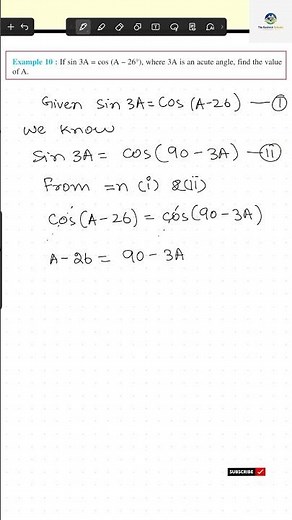 Example 10 : If sin 3A = cos (A – 26°), where 3A is an acute angle, find the value
of A.
Given Sin 3A = Cos (A-26) — (I)
we know
Sin 3A = cos (90 - 3A) — (II)
From =n (i) & (ii)
cos (A - 26) = cos (90 - 3A)
A - 26 = 90 - 3A
SUBSCRIBE